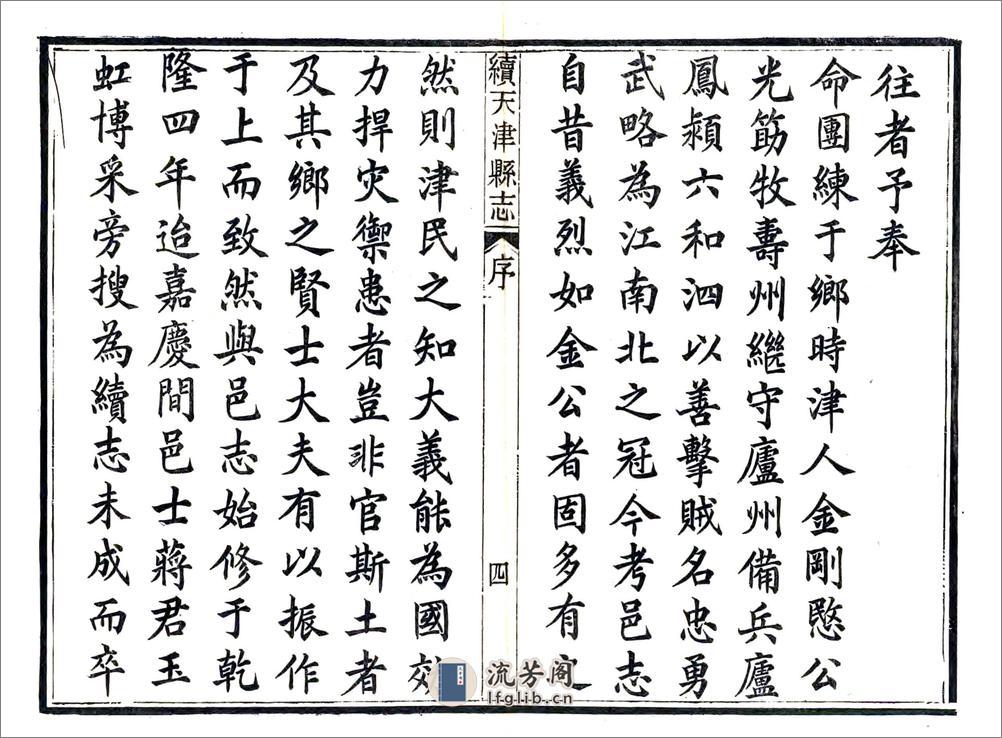 往者予奉
命團練于鄉時津人金剛愍公
光筯牧壽州繼守廬州備兵廬
鳳潁六和泗以善擊賊名忠勇
武略為江南北之冠今考邑志
自昔義烈如金公者固多有之
續天津縣志 序 四
然則津民之知大義能為國效
力捍灾禦患者豈非官斯土者
及其鄉之賢士大夫有以振作
于上而致然與邑志始修于乾
隆四年迨嘉慶間邑士蔣君玉
虹博采旁搜為續志未成而卒
流芳阁
lfglib.cn